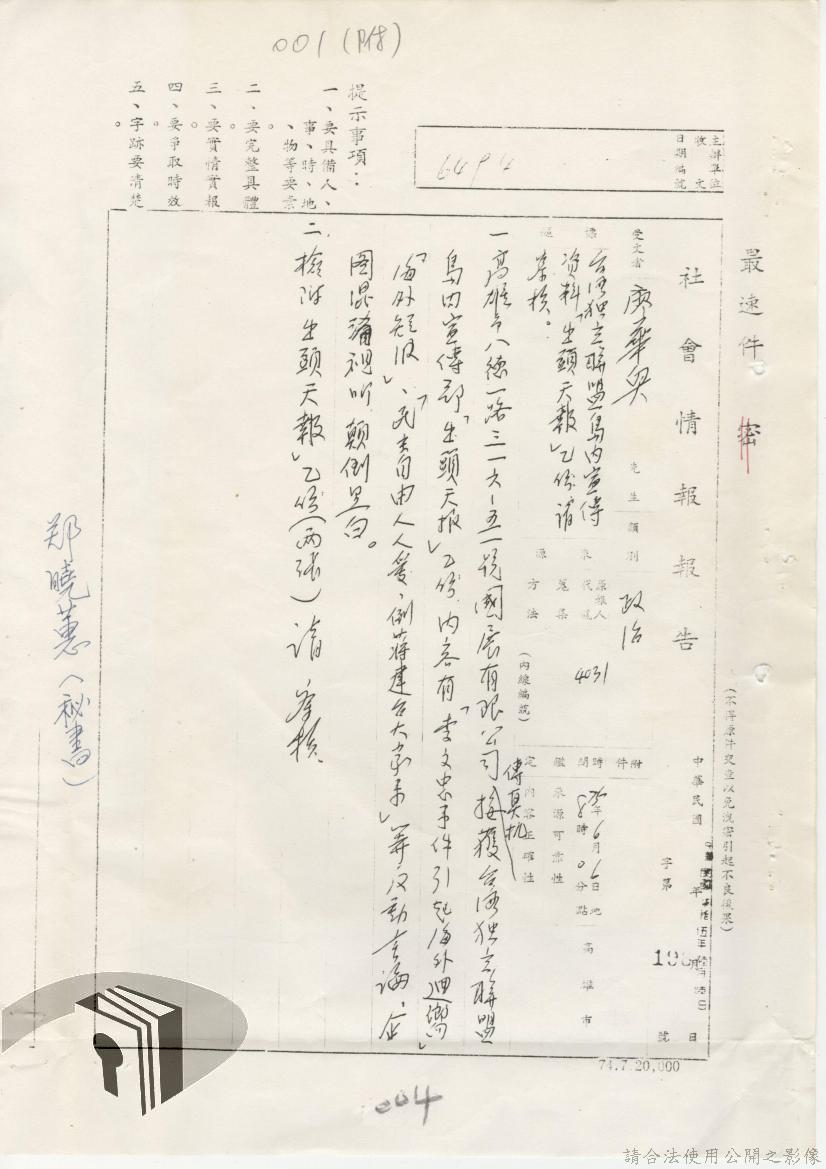 001(附)
最速件 密
社會情報報告
(不得原件交查以免洩密引起不良後果)
中華民國 年 月 日
字第 號
主辦單位
收文
日期編號
6494
受文者 廖華興 先生
類別 政治
附件
台灣独立聯盟島內宣傳
資料「出頭天報」乙份請
參核。
來源
原報人代號 4031
蒐集方法
(內線編號)
時間 75年6月6日8時0分
地點 高雄市
鑑定
來源可靠性
內容正確性
一高雄市八德一路三一六-五一號國展有限公司傳真机接獲台灣独立聯盟
島內宣傳部「出頭天报」乙份,內容有「李文忠事件引起海外迴響」
「海外短波」、「民主自由人人愛,倒蔣建台大家來」等反動言論,企
图混淆視听,顛倒黑白。
二、檢附「出頭天報」乙份(兩張)請 參核
提示事項:
一、要具備人、
事、時、地
、物等要素
。
二、要完整具體
。
三、要實情實報
。
四、要爭取時效
。
五、字跡要清楚
。
郑曉蕙(祕書)
74.7.20,000
004
請合法使用公開之影像